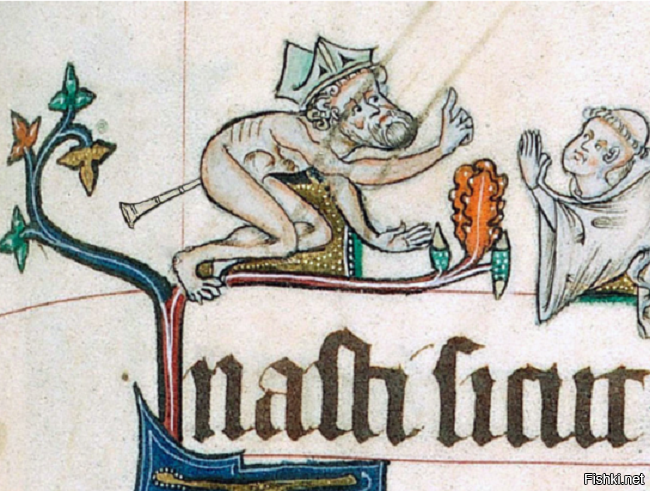 naſti ſicut
Fishki.net